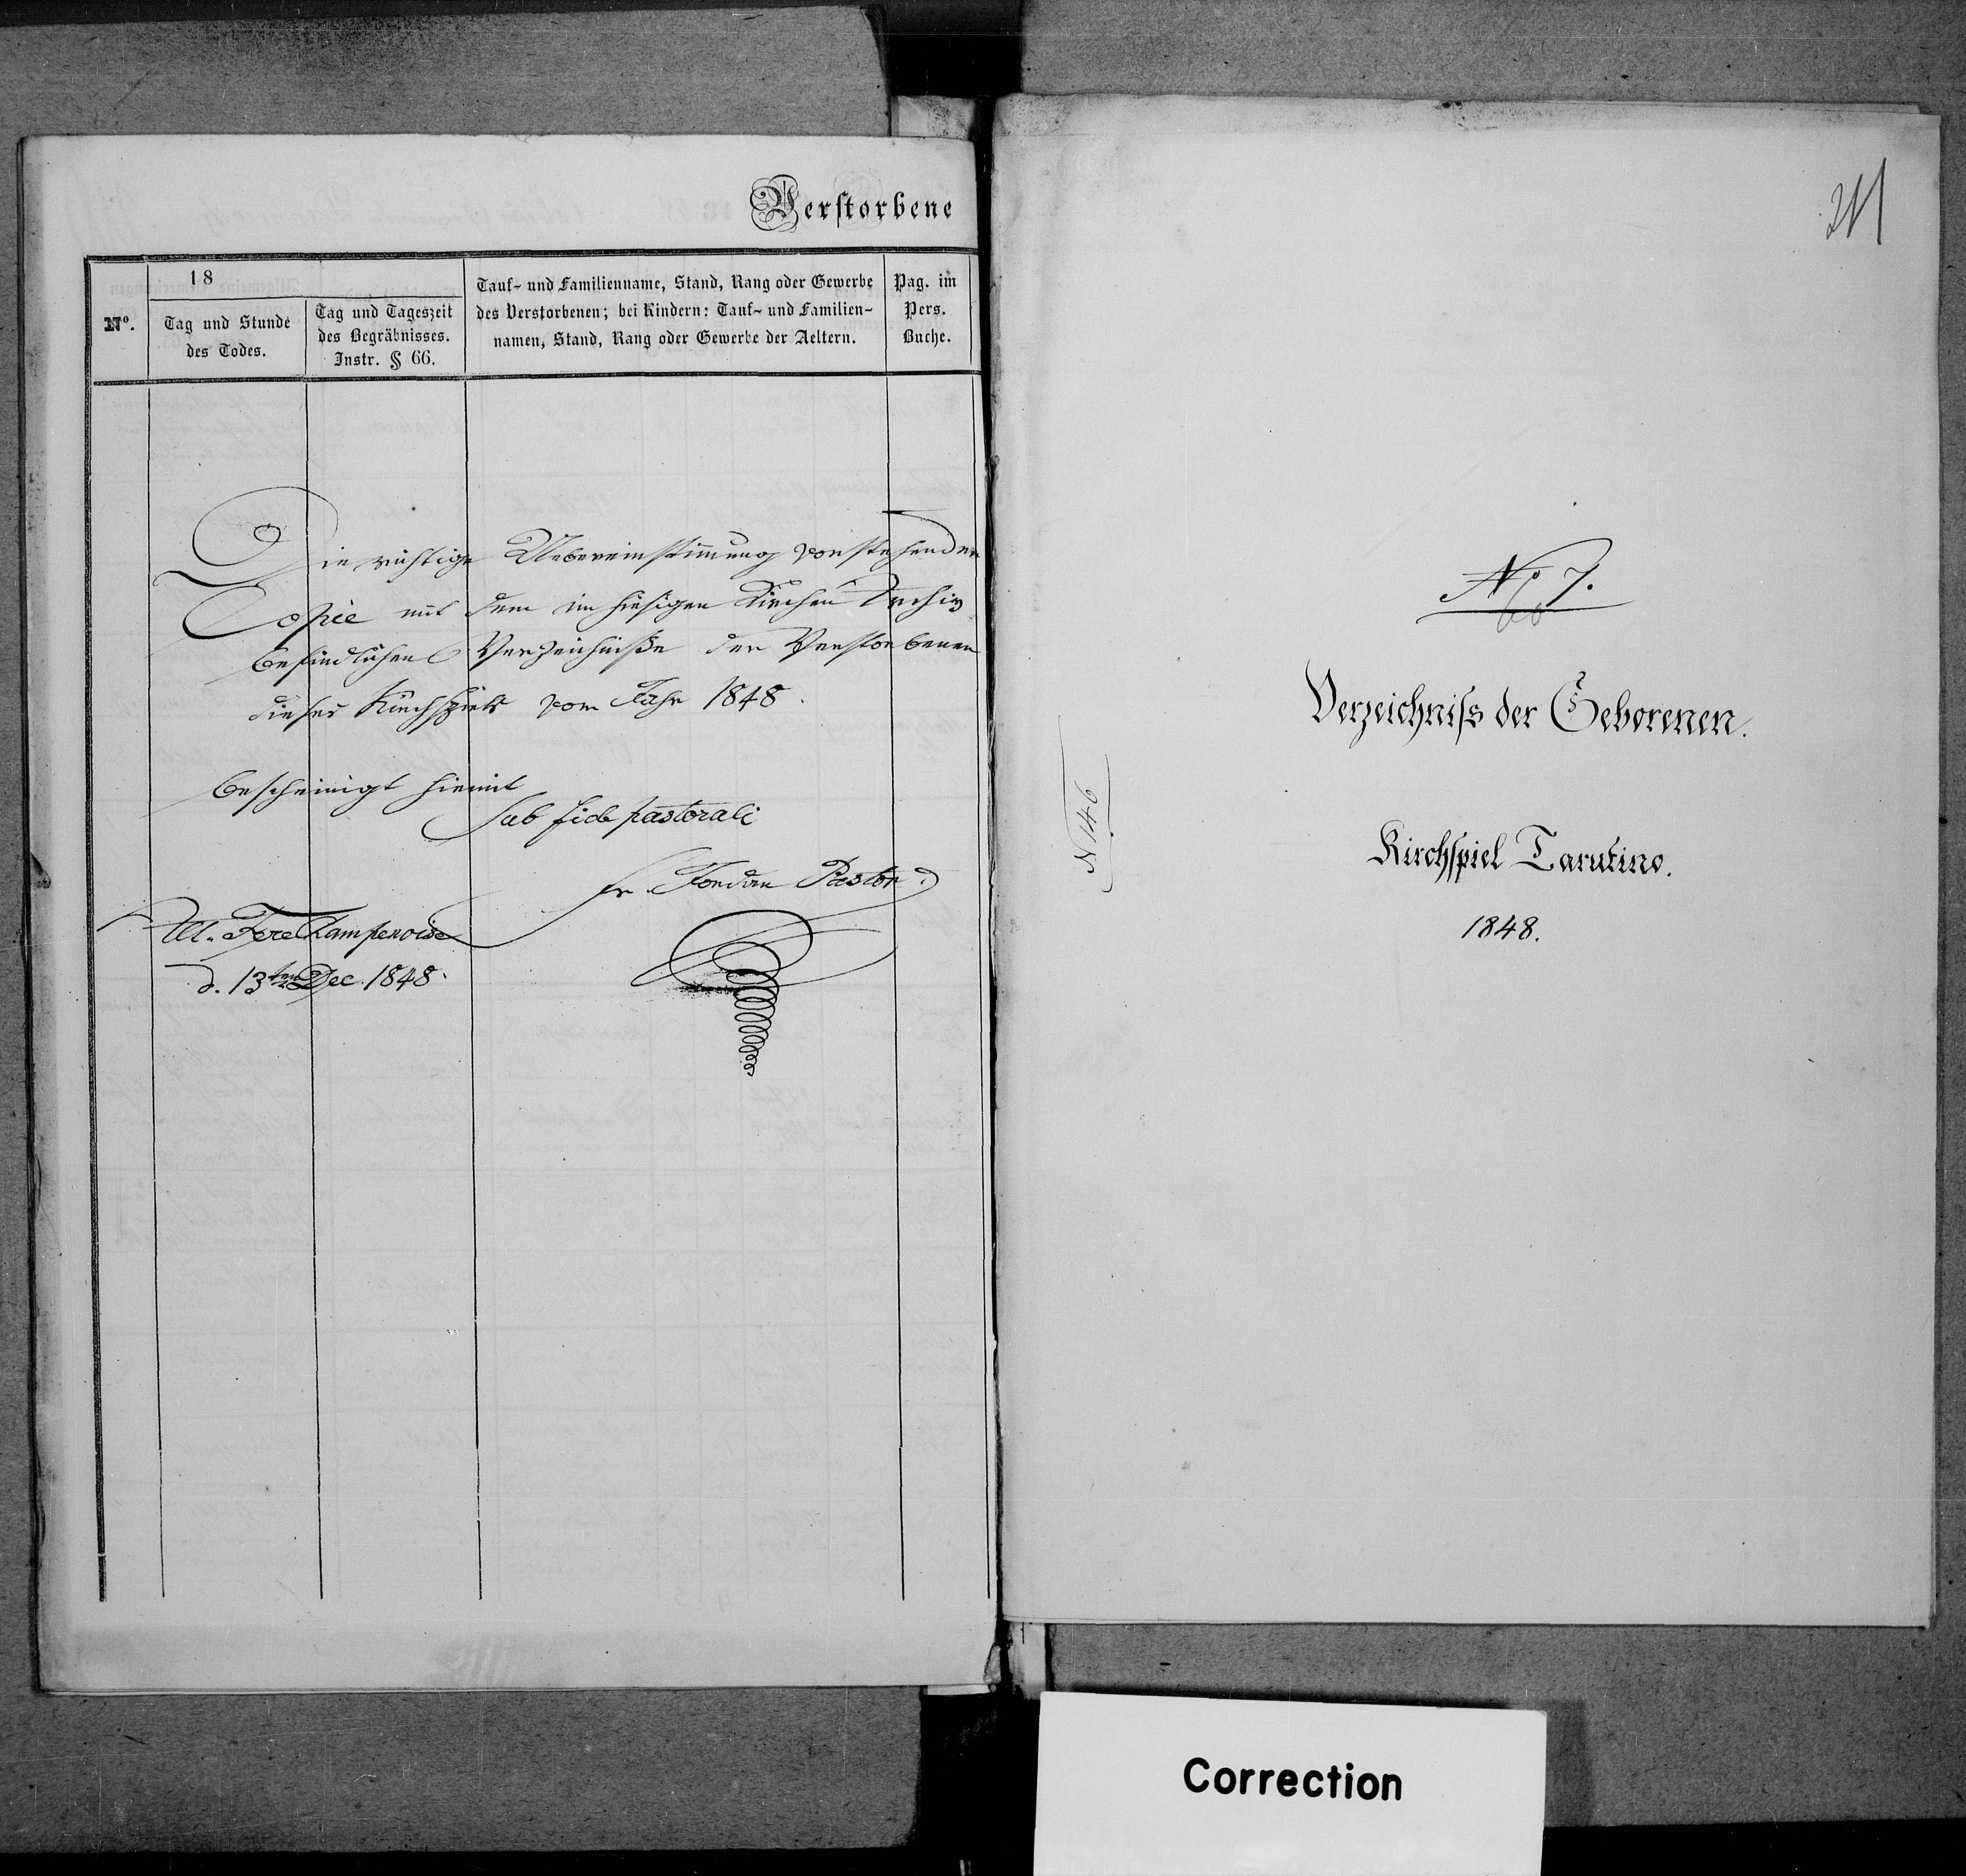 Verstorbene
No.
18
Tag und Stunde
des Todes.
Tag und Tageszeit
des Begräbnisses.
Instr. § 66.
Tauf- und Familienname, Stand, Rang oder Gewerbe
des Verstorbenen; bei Kindern: Tauf- und Familien-
namen, Stand, Rang oder Gewerbe der Aeltern.
Pag. im
Pers.
Buche.
Die richtige Uebereinstimmung vorstehender
Copie mit dem im hiesigen Kirchen Archiv
befindlichen Verzeichniße der Verstorbenen
dieses Kirchspiels vom Jahr 1848.
bescheinigt hiemit
sub fide pastorali
Fr. Jordan Pastor
Alt. Fere Champenoise
d. 13ten Dec. 1848.
N 146
No 7.
Verzeichniss der Geborenen.
Kirchspiel Tarutino.
1848.
Correction